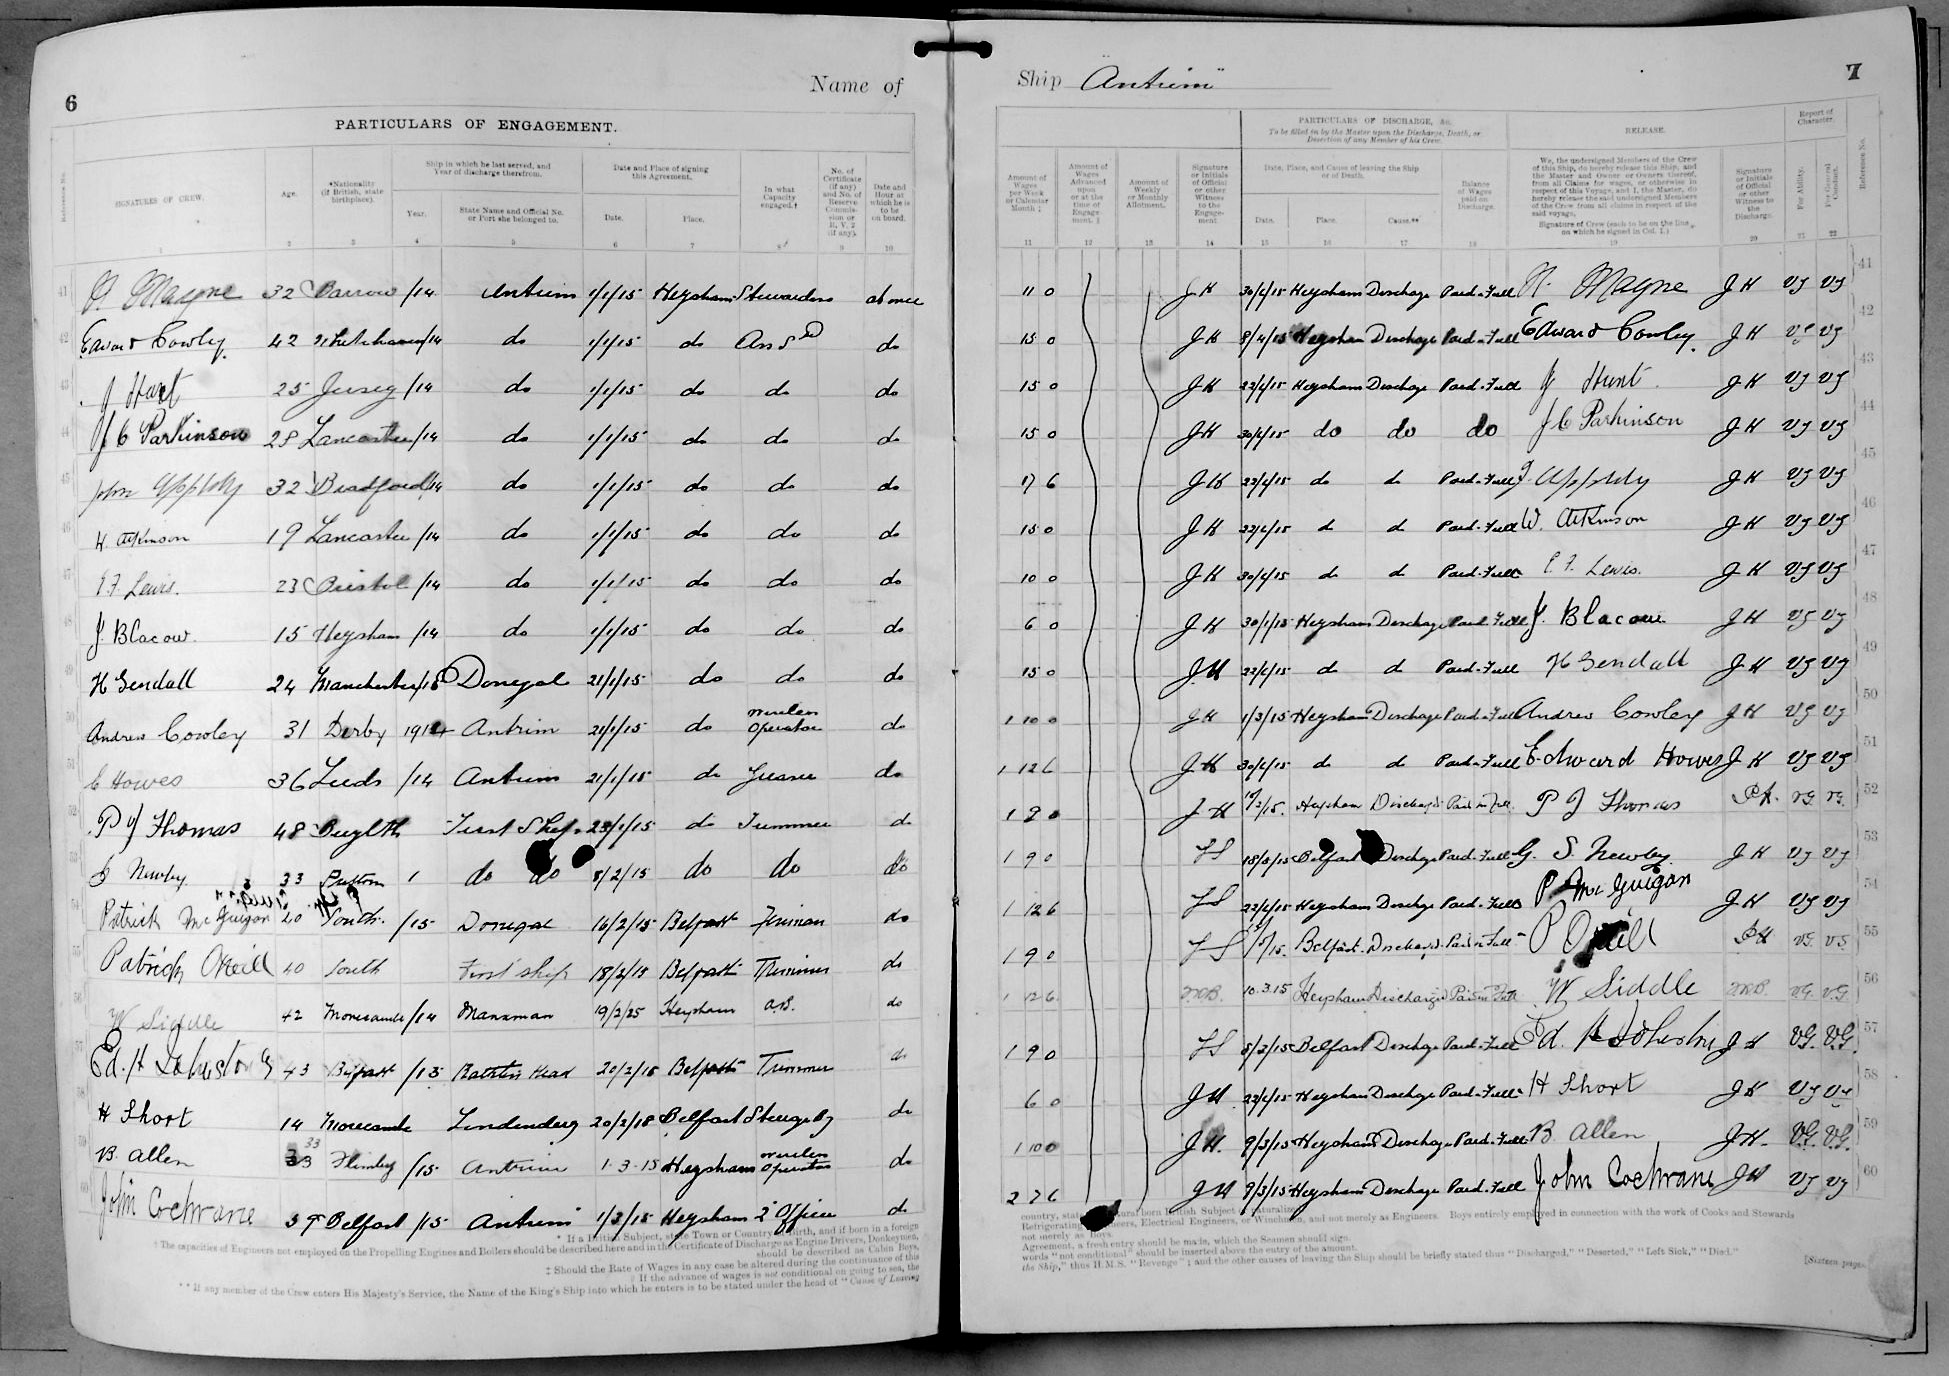 6
Name of
PARTICULARS OF ENGAGEMENT.
Reference No.
SIGNATURES OF CREW.
Age.
*Nationality (if British, state birthplace).
Ship in which he last served, and Year of discharge therefrom.
Year.
State Name and Official No. or Port she belonged to.
Date and Place of signing this Agreement.
Date.
Place.
In what Capacity engaged.†
No. of Certificate (if any) and No. of Reserve Commission or R.V. 2 (if any).
Date and Hour at which he is to be on board.
1 2 3 4 5 6 7 8 9 10
41 Mayne 32 Barrow /14 Antrim 1/1/15 Heysham Stewardess at once
42 Edward Cowley. 42 Whitehaven /14 do 1/1/15 do Ass Sd do
43 J 25 Jersey /14 do 1/1/15 do do do
44 J C Parkinson 28 Lancaster /14 do 1/1/15 do do do
45 John 32 Bradford /14 do 1/1/15 do do do
46 W. Atkinson 19 Lancaster /14 do 1/1/15 do do do
47 E.F. Lewis. 23 Bristol /14 do 1/1/15 do do do
48 J. Blacow. 15 Heysham /14 do 1/1/15 do do do
49 H Gendall 24 Manchester /15 Donegal 21/1/15 do do do
50 Andrew Cowley 31 Derby 1914 Antrim 21/1/15 do Wireless Operator do
51 E Howes 36 Leeds /14 Antrim 21/1/15 do Greaser do
52 P J Thomas 48 Builth First Ship 1/15 do Trimmer do
53 Newby 33 do do 8/2/15 do do do
54 Patrick McGuigan 40 Louth. /15 Donegal 16/2/15 Belfast Fireman do
55 Patrick ONeill 40 Louth First ship 18/2/15 Belfast Trimmer do
56 W Siddle 42 Morecambe /14 Manxman 19/2/ Heysham A.B. do
57 Ed. H Johnston 43 Belfast /15 Head 20/2/15 Belfast Trimmer do
58 H Short 14 Morecambe 20/2/15 Belfast do
59 B. Allen 33 /15 Antrim 1.3.15 Heysham Wireless Operator do
60 John Cochrane Belfast /15 Antrim 1/3/15 Heysham 2 Officer do
* If a British Subject, state Town or Country of birth, and if born in a foreign
† The capacities of Engineers not employed on the Propelling Engines and Boilers should be described here and in the Certificate of Discharge as Engine Drivers, Donkeymen,
should be described as Cabin Boys,
‡ Should the Rate of Wages in any case be altered during the continuance of this
|| If the advance of wages is not conditional on going to sea, the
** If any member of the Crew enters His Majesty's Service, the Name of the King's Ship into which he enters is to be stated under the head of "Cause of Leaving
Ship "Antrim"
7
Amount of Wages per Week or Calendar Month ‡
Amount of Wages Advanced upon or at the time of Engagement. ||
Amount of Weekly or Monthly Allotment.
Signature or Initials of Official or other Witness to the Engagement
PARTICULARS OF DISCHARGE, &c.
To be filled in by the Master upon the Discharge, Death, or Desertion of any Member of his Crew.
Date, Place, and Cause of leaving the Ship or of Death.
Date.
Place.
Cause.**
Balance of Wages paid on Discharge.
RELEASE.
We, the undersigned Members of the Crew of this Ship, do hereby release this Ship, and the Master and Owner or Owners thereof, from all Claims for wages, or otherwise in respect of this Voyage, and I, the Master, do hereby release the said undersigned Members of the Crew from all claims in respect of the said voyage.
Signature of Crew (each to be on the line on which he signed in Col. 1.)
Signature or Initials of Official or other Witness to the Discharge.
Report of Character.
For Ability.
For General Conduct.
Reference No.
11 12 13 14 15 16 17 18 19 20 21 22
11 0 JK 30/6/15 Heysham Discharge Paid-Full Mayne JK VG VG 41
15 0 JK 8/4/15 Heysham Discharge Paid-Full Edward Cowley. JK VG VG 42
15 0 JK 22/6/15 Heysham Discharge Paid-Full J JK VG VG 43
15 0 JK 30/6/15 do do do J C Parkinson JK VG VG 44
17 6 JK 22/6/15 do do Paid-Full J. JK VG VG 45
15 0 JK 22/6/15 do do Paid-Full W. Atkinson JK VG VG 46
10 0 JK 30/6/15 do do Paid-Full E. F. Lewis. JK VG VG 47
6 0 JK 30/1/15 Heysham Discharge Paid-Full J. Blacow JK VG VG 48
15 0 JK 22/6/15 do do Paid-Full H Gendall JK VG VG 49
1 10 0 JK 1/3/15 Heysham Discharge Paid-Full Andrew Cowley JK VG VG 50
1 12 6 JK 30/6/15 do do Paid-Full Edward Howes JK VG VG 51
1 9 0 JK /15. Heysham Discharged Paid in full. P J Thomas VG. VG. 52
1 9 0 15 Belfast Discharge Paid-Full G. S. Newby. JK VG VG 53
1 12 6 22/6/15 Heysham Discharge Paid-Full P McGuigan JK VG VG 54
1 9 0 /15. Belfast. Discharged. Paid in Full P ONeill VG. VG 55
1 12 6 10.3.15 Heysham Discharged Paid in Full W Siddle VG. VG. 56
1 9 0 15 Belfast Discharge Paid-Full Ed. H Johnston JK VG. VG. 57
6 0 JK 22/6/15 Heysham Discharge Paid-Full H Short JK VG VG 58
1 10 0 JK. 9/3/15 Heysham Discharge Paid-Full B. Allen JK. VG. VG. 59
2 7 6 JK 9/3/15 Heysham Discharge Paid-Full John Cochrane JK VG VG 60
country, state natural born British Subject naturalized
Refrigerating Engineers, Electrical Engineers, or Winchmen, and not merely as Engineers. Boys entirely employed in connection with the work of Cooks and Stewards
not merely as Boys.
Agreement, a fresh entry should be made, which the Seamen should sign.
words "not conditional" should be inserted above the entry of the amount.
the Ship," thus H.M.S. "Revenge"; and the other causes of leaving the Ship should be briefly stated thus "Discharged," "Deserted," "Left Sick," "Died."
[Sixteen page